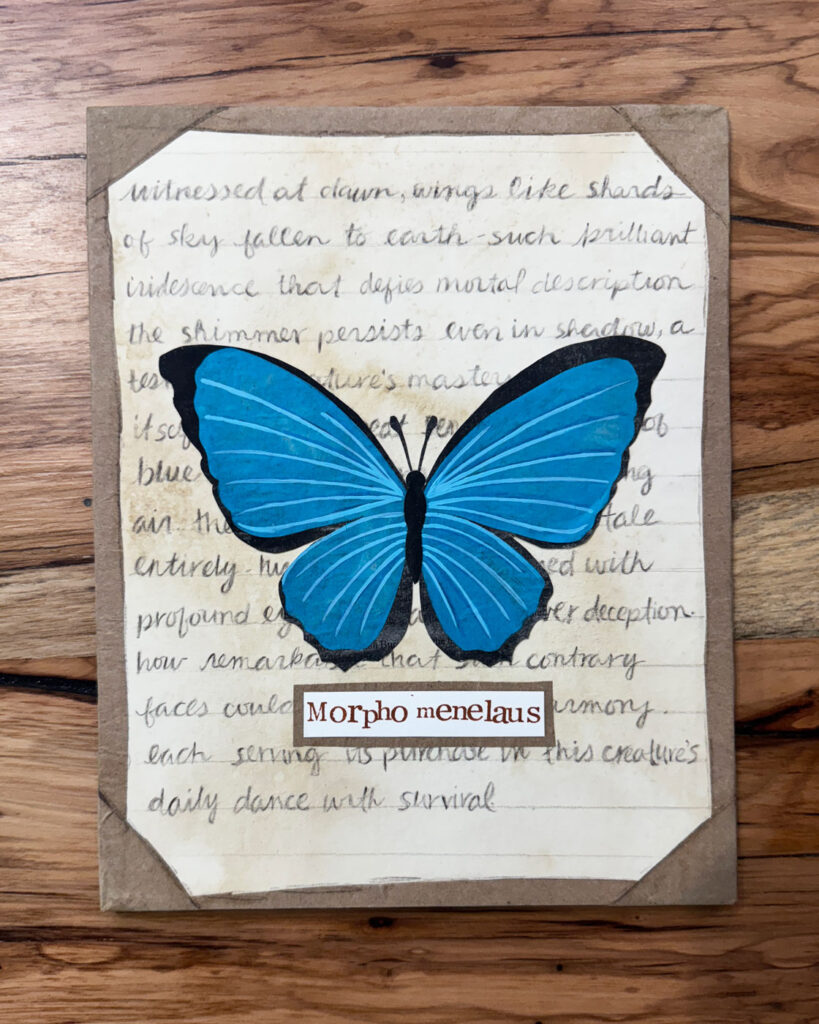 witnessed at dawn, wings like shards
of sky fallen to earth-such brilliant
iridescence that defies mortal description
the shimmer persists even in shadow, a
nature's
of
blue
air. the tale
entirely. with
profound deception.
how that such contrary
faces could
Morpho menelaus
each serving its purchase in this creature's
daily dance with survival